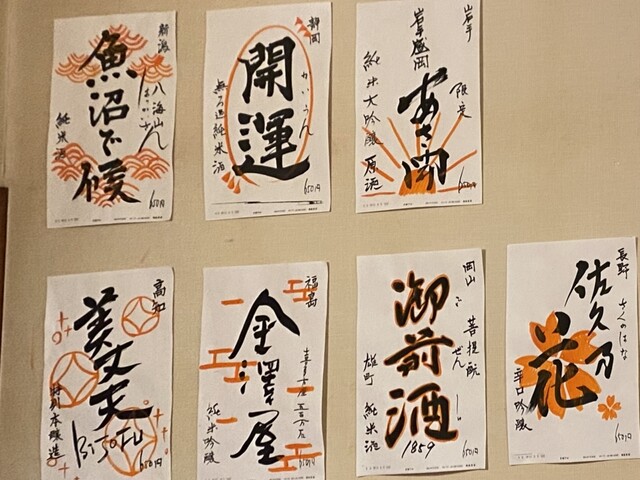 新潟
八海山
はっかいさん
魚沼で候
純米酒
650円
静岡
かいうん
開運
無ろ過純米酒
650円
岩手
岩手盛岡
限定
あさ開
純米大吟醸原酒
650円
高知
美丈夫
Bijofu
特別本醸造
650円
福島
金澤屋
純米吟醸
650円
岡山
ごぜんしゅ
菩提酛
御前酒
1859
雄町
純米酒
650円
長野
さくのはな
佐久乃花
辛口吟醸
650円